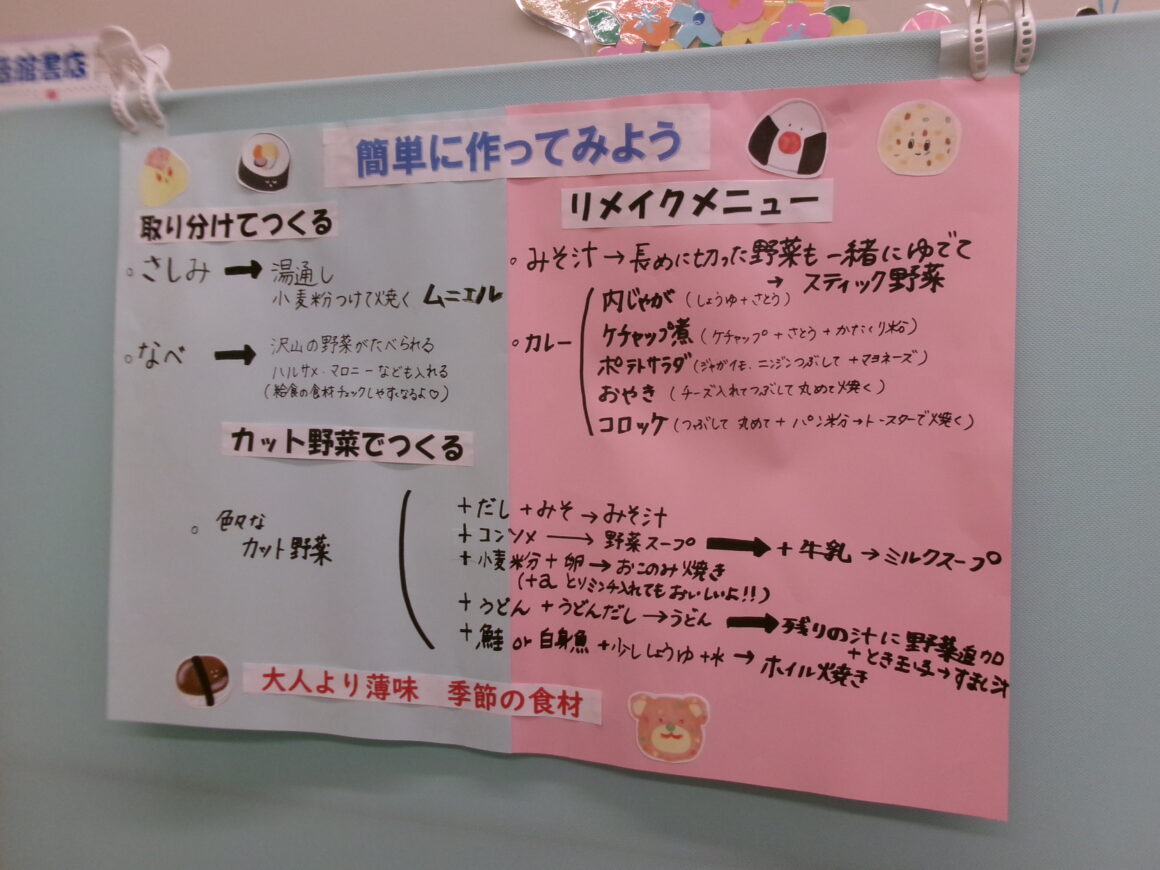 書店
簡単に作ってみよう
取り分けてつくる
。さしみ → 湯通し
小麦粉つけて焼く ムニエル
。なべ → 沢山の野菜がたべられる
ハルサメ・マロニーなども入れる
(給食の食材チェックしやすくなるよ♡)
リメイクメニュー
。みそ汁 → 長めに切った野菜も一緒にゆでて
→ スティック野菜
。カレー
肉じゃが (しょうゆ+さとう)
ケチャップ煮 (ケチャップ+さとう+かたくり粉)
ポテトサラダ (ジャガイモ、ニンジンつぶして+マヨネーズ)
おやき (チーズ入れてつぶして丸めて焼く)
コロッケ (つぶして 丸めて + パン粉→トースターで焼く)
カット野菜でつくる
。色々な
カット野菜
+だし+みそ→みそ汁
+コンソメ → 野菜スープ → +牛乳 → ミルクスープ
+小麦粉+卵→おこのみ焼き
(+a とりミンチ入れてもおいしいよ!!)
+うどん+うどんだし→うどん → 残りの汁に野菜追加
+とき玉子→すまし汁
+鮭 or 白身魚+少ししょうゆ+水 → ホイル焼き
大人より薄味 季節の食材